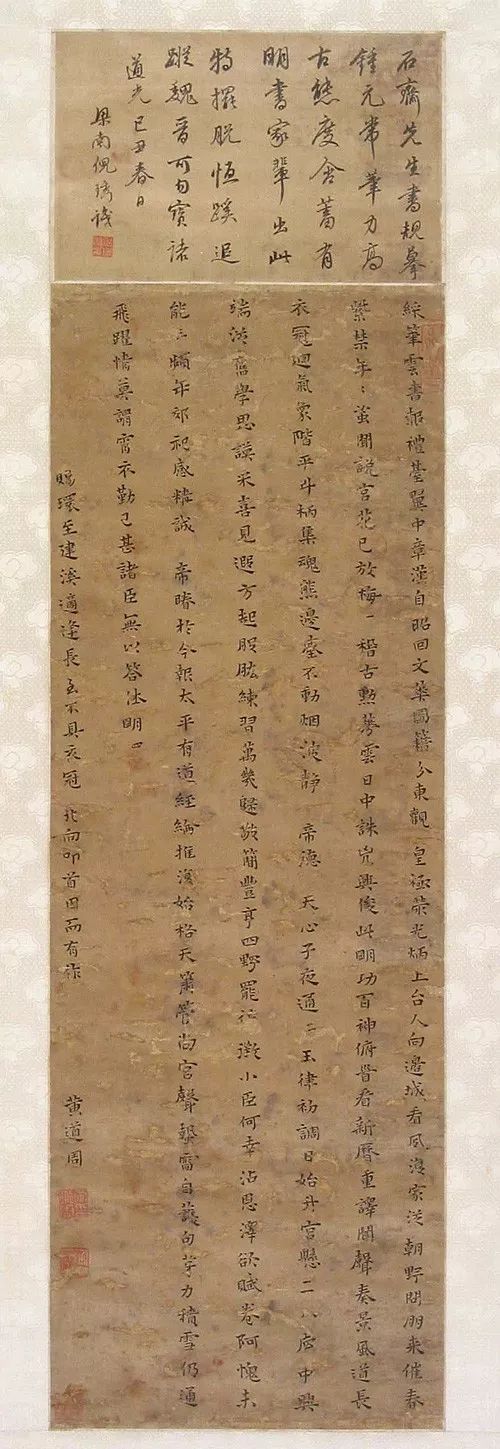 石齋先生書規摹
鍾元常筆力高
古態度含蓄有
明書家輩出此
特擺脫恒蹊追
蹤魏晉可勿寶諸
道光己丑春日
梁南倪濤識
綵筆雲書報禮臺翼中章漢自昭回文華圖籍分東觀 皇極榮光炳上台人向邊城看風浪家從朝野問朋來催春
紫禁年〻蚤聞說宮花已放梅一稽古勳華雲日中誅兇興俊此明功百神俯晉看新曆重譯聞聲奏景風道長
衣冠迴氣象階平斗柄集魂熊邊臺不動烟波靜 帝德 天心子夜通二玉律初調日始升宮懸二八應中興
端從舊學思謨采喜見遐方起股肱練習萬幾賢敬簡豐亨四野罷征徵小臣何幸沾恩澤欲賦卷阿愧未
能三頻年郊祀感精誠 帝睠於今報太平有道經綸推復始格天簫管尚宮聲發雷自護句芽力積雪仍通
飛躍情莫謂宵衣勤已甚諸臣無以答休明四
賜環至建溪適逢長至不具衣冠 北向叩首因而有作
黃道周